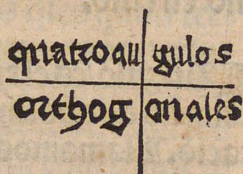 quattoau gulos
orthog onales